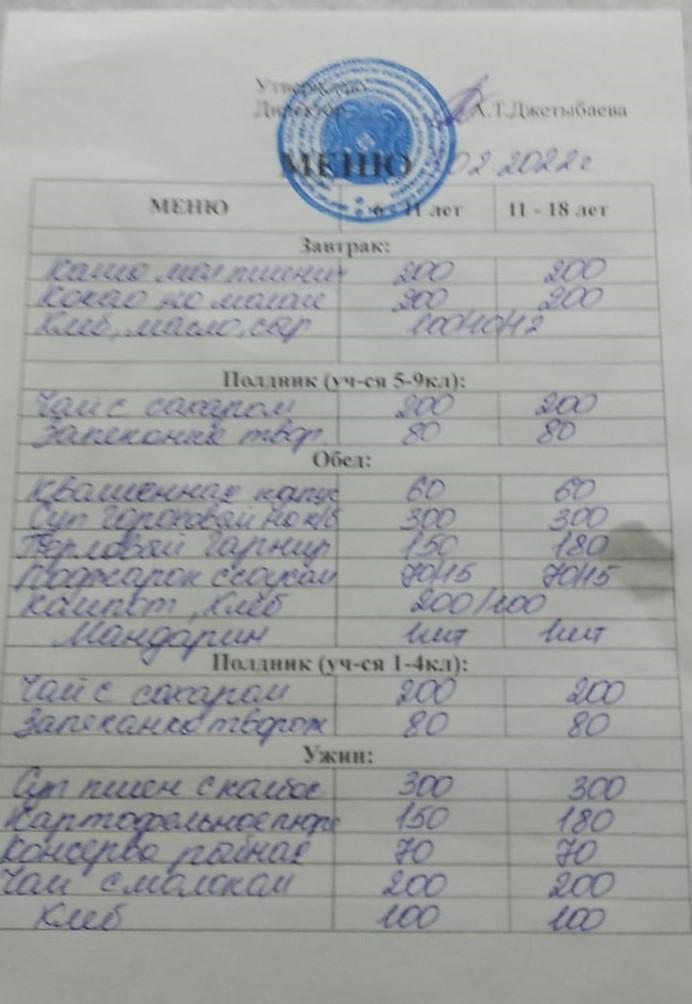 Утверждаю
Директор А.Т.Джетыбаева
МЕНЮ 02.2022г
МЕНЮ 6 - 11 лет 11 - 18 лет
Завтрак:
Каша мол пшенич 200 200
Какао на молоке 200 200
Хлеб, масло, сыр 100/10/12
Полдник (уч-ся 5-9кл):
Чай с сахаром 200 200
Запеканка твор. 80 80
Обед:
Квашенная капус 60 60
Суп гороховый на к/б 300 300
Перловый гарнир 150 180
Поджарок с соусом 70/15 70/15
Компот, Хлеб 200/100
Мандарин 1шт 1шт
Полдник (уч-ся 1-4кл):
Чай с сахаром 200 200
Запеканка творож 80 80
Ужин:
Суп пшен с колбас 300 300
Картофельное пюре 150 180
Консерва рыбная 70 70
Чай с молоком 200 200
Хлеб 100 100